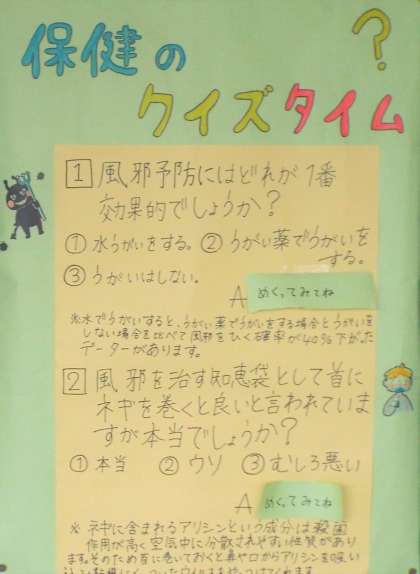 保健の
?
クイズタイム
1 風邪予防にはどれが1番
効果的でしょうか?
①水うがいをする。②うがい薬でうがいを
する。
③うがいはしない。
A めくってみてね
※水でうがいすると、うがい薬でうがいをする場合とうがいを
しない場合を比べて風邪をひく確率が40%下がった
データーがあります。
2 風邪を治す知恵袋として首に
ネギを巻くと良いと言われていま
すが本当でしょうか?
①本当 ②ウソ ③むしろ悪い
A めくってみてね
※ネギに含まれるアリシンという成分は殺菌
作用が高く空気中に分散されやすい性質があり
ます。そのため首に巻いておくと鼻や口からアリシンを吸い